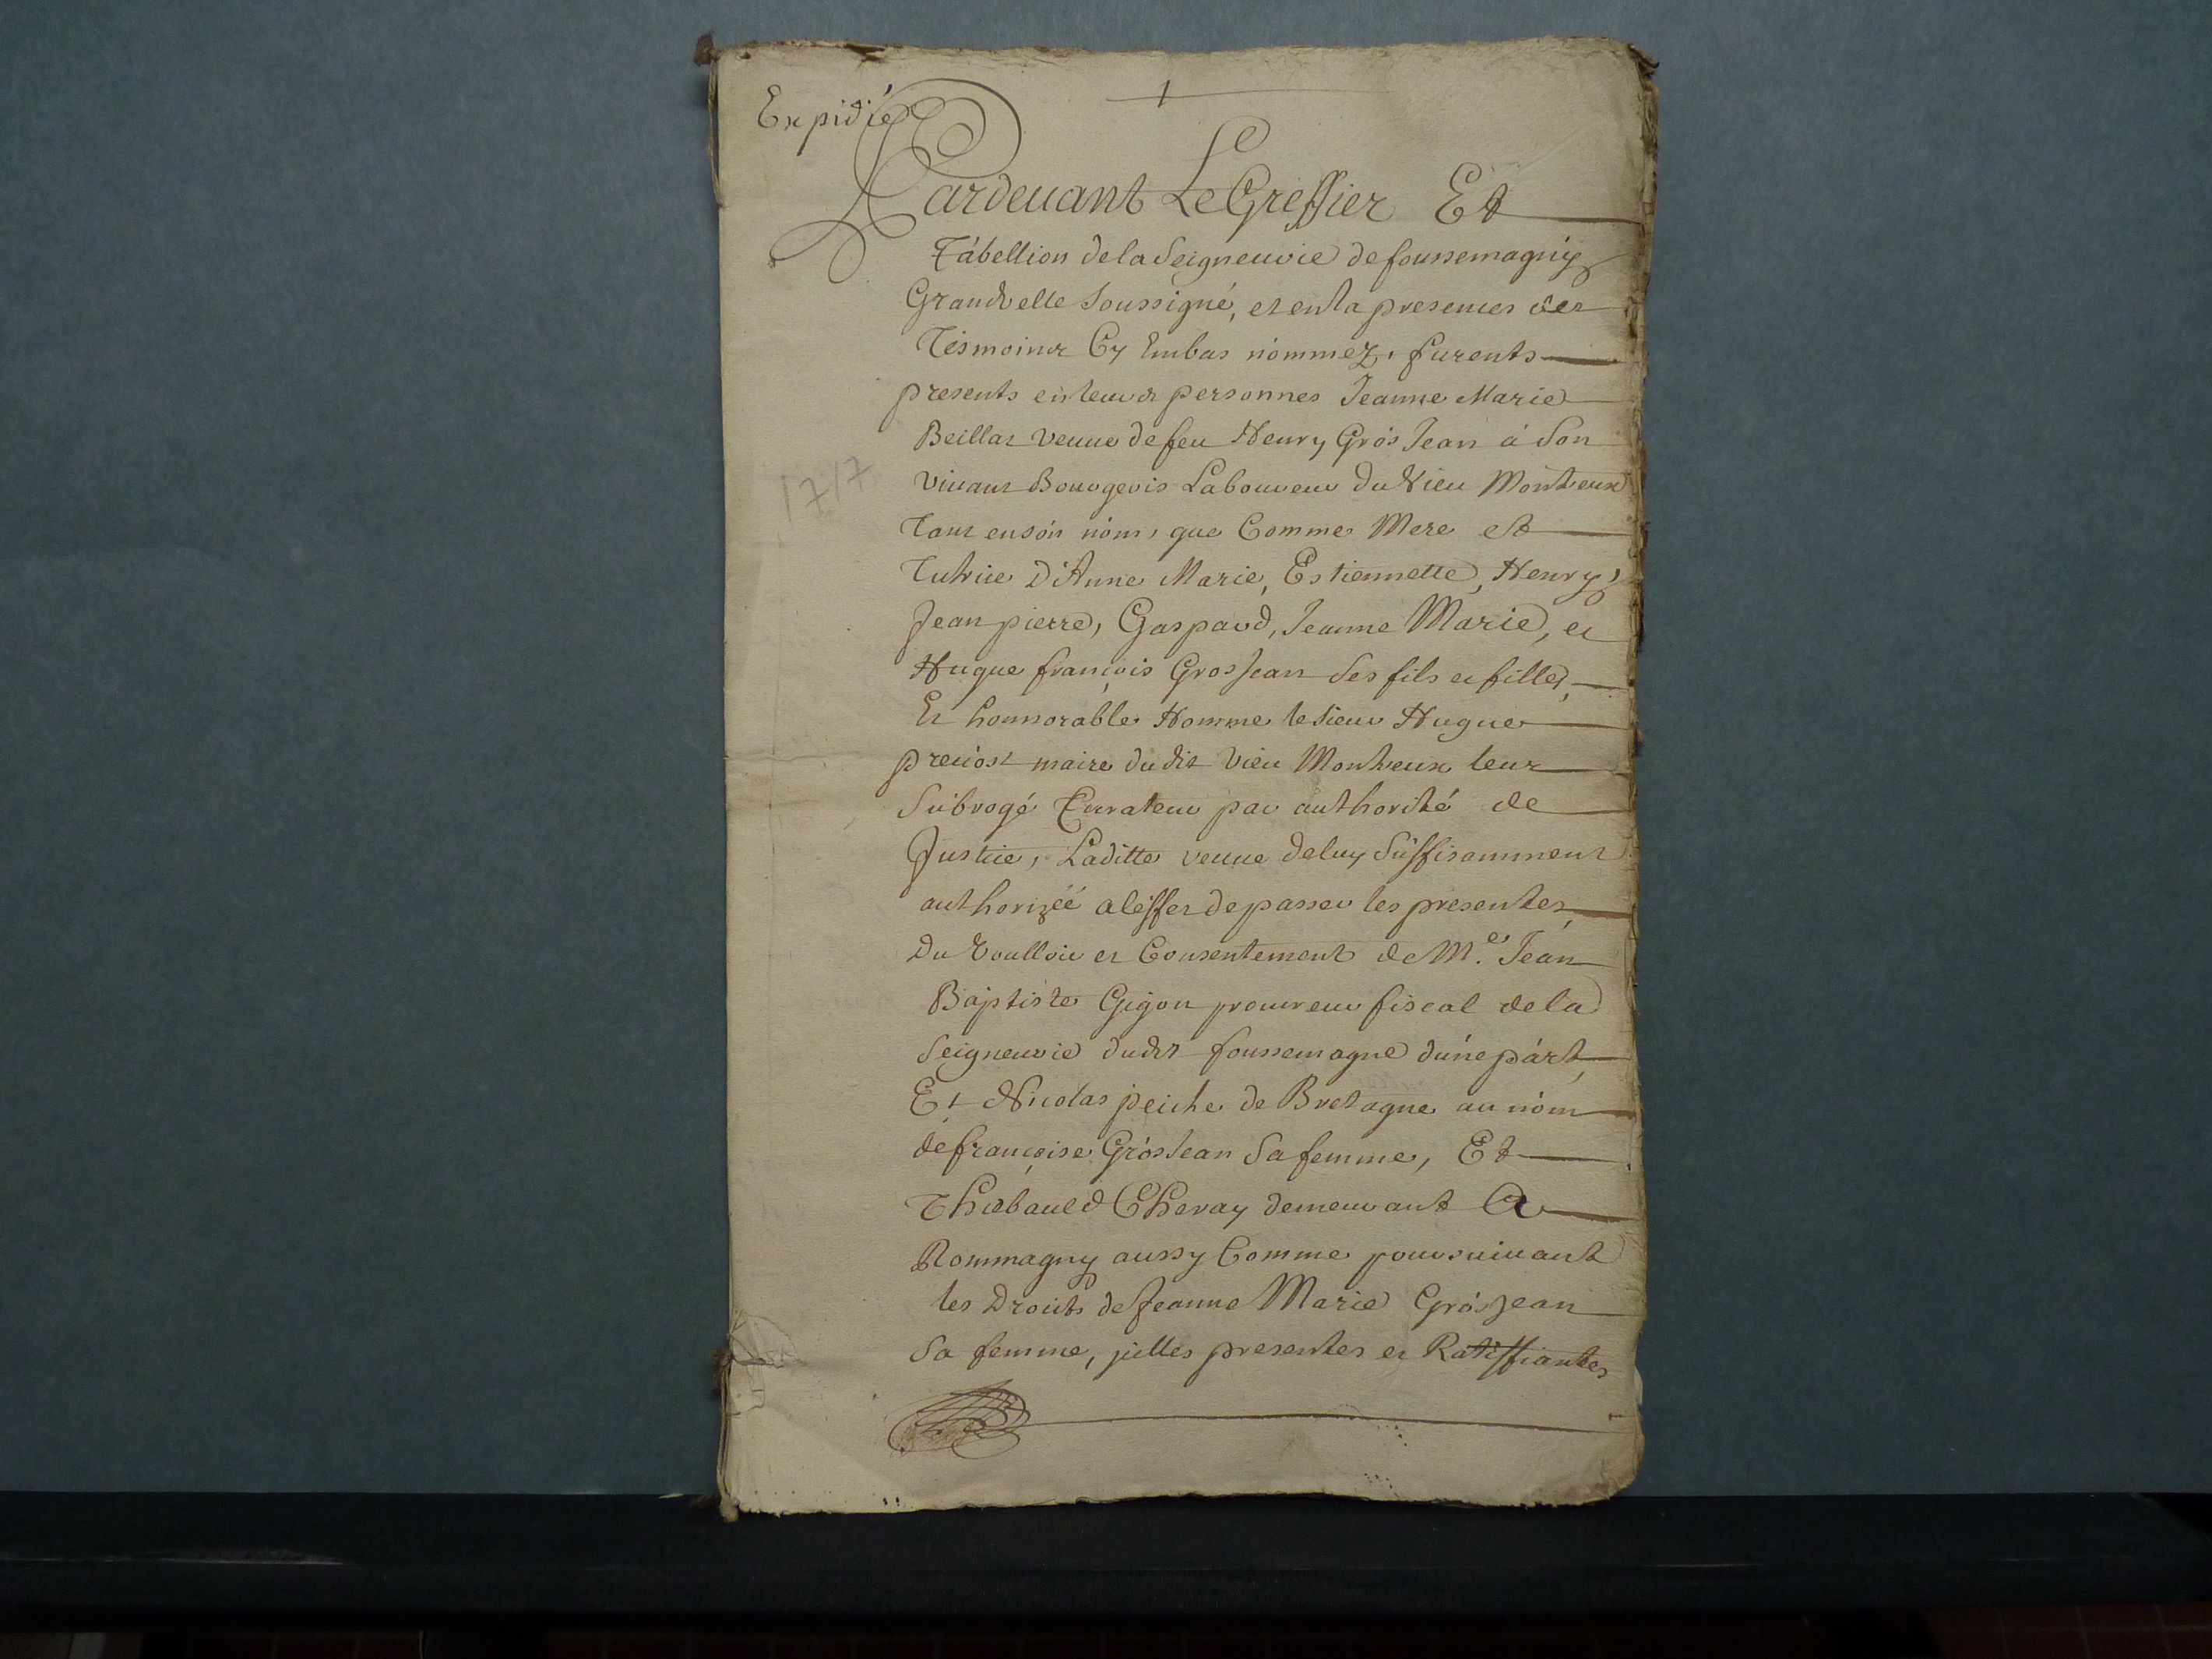 Expidié
1
Pardeuant Le Greffier Et
Tabellion de la Seigneurie de foussemagny
Grandvelle Soussigné, et en la presences des
Tesmoins Cy Embas nommez, furents
presents en leurs personnes Jeanne Marie
Beillar veuue de feu Henry Gros Jean à Son
viuant Bourgeois Laboureur du Vieu Montreux
Tant en son nom, que Comme Mere et
Tutrice D'Anne Marie, Estiennette, Henry,
Jean pierre, Gaspard, Jeanne Marie, et
Hugue françois Gros Jean Ses fils et filles,
Et honnorable Homme le Sieur Hugue
preuost maire dudit vieu Montreux leur
Subrogé Currateur par authorité de
Justice, Laditte veuue de luy Suffisamment
authorizéé a leffet de passer les presentes,
Du voulloir et Consentement de Me. Jean
Baptiste Gigon procureur fiscal de la
Seigneurie dudit foussemagne d'une part,
Et Nicolas peiche de Bretagne au nom
de françoise Gros Jean Sa femme, Et
Thiebauld Cheray demeurant A
Rommagny aussy Comme poursuiuant
les Droits de Jeanne Marie Gros Jean
Sa femme, jcelles presentes et Ratiffiantes
1717